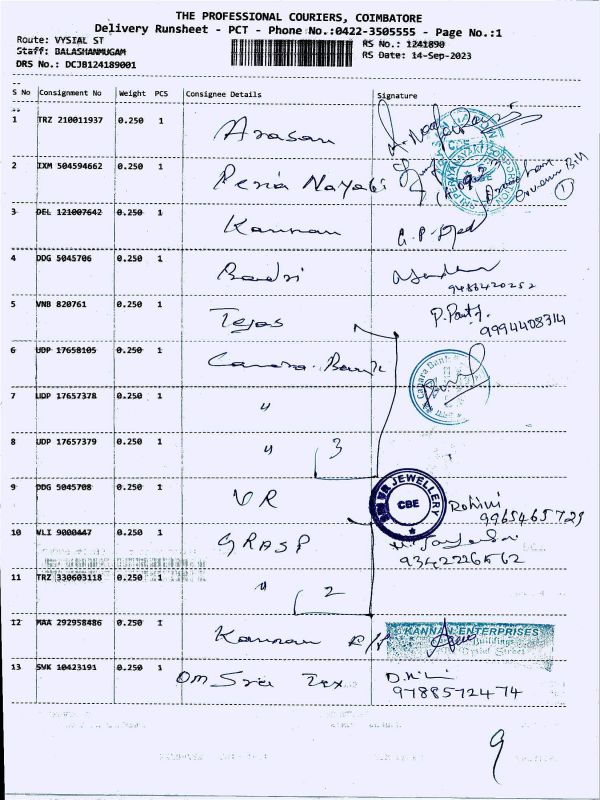 THE PROFESSIONAL COURIERS, COIMBATORE
Delivery Runsheet - PCT - Phone No.:0422-3505555 - Page No.:1
Route: VYSIAL ST
RS No.: 1241890
Staff: BALASHANMUGAM
RS Date: 14-Sep-2023
DRS No.: DCJB124189001
S No Consignment No Weight PCS Consignee Details Signature
1 TRZ 210011937 0.250 1 Arasan
2 IXM 504594662 0.250 1 Peria Nayaki
3 DEL 121007642 0.250 1 Kannan
4 DDG 5045706 0.250 1 Badri
9486420252
5 VNB 820761 0.250 1 Tejas
9994408314
6 UDP 17658105 0.250 1 Canara Bank
7 UDP 17657378 0.250 1 "
8 UDP 17657379 0.250 1 " 3
9 DDG 5045708 0.250 1 VR
VR JEWELLERY
CBE
Rohini
9965465729
10 VLI 9000447 0.250 1 GRASP
9342226562
11 TRZ 330603118 0.250 1 " 2
12 MAA 292958486 0.250 1 Kannan
KANNAN ENTERPRISES
13 SVK 10423191 0.250 1 Om Sree Tex
9788572474
9